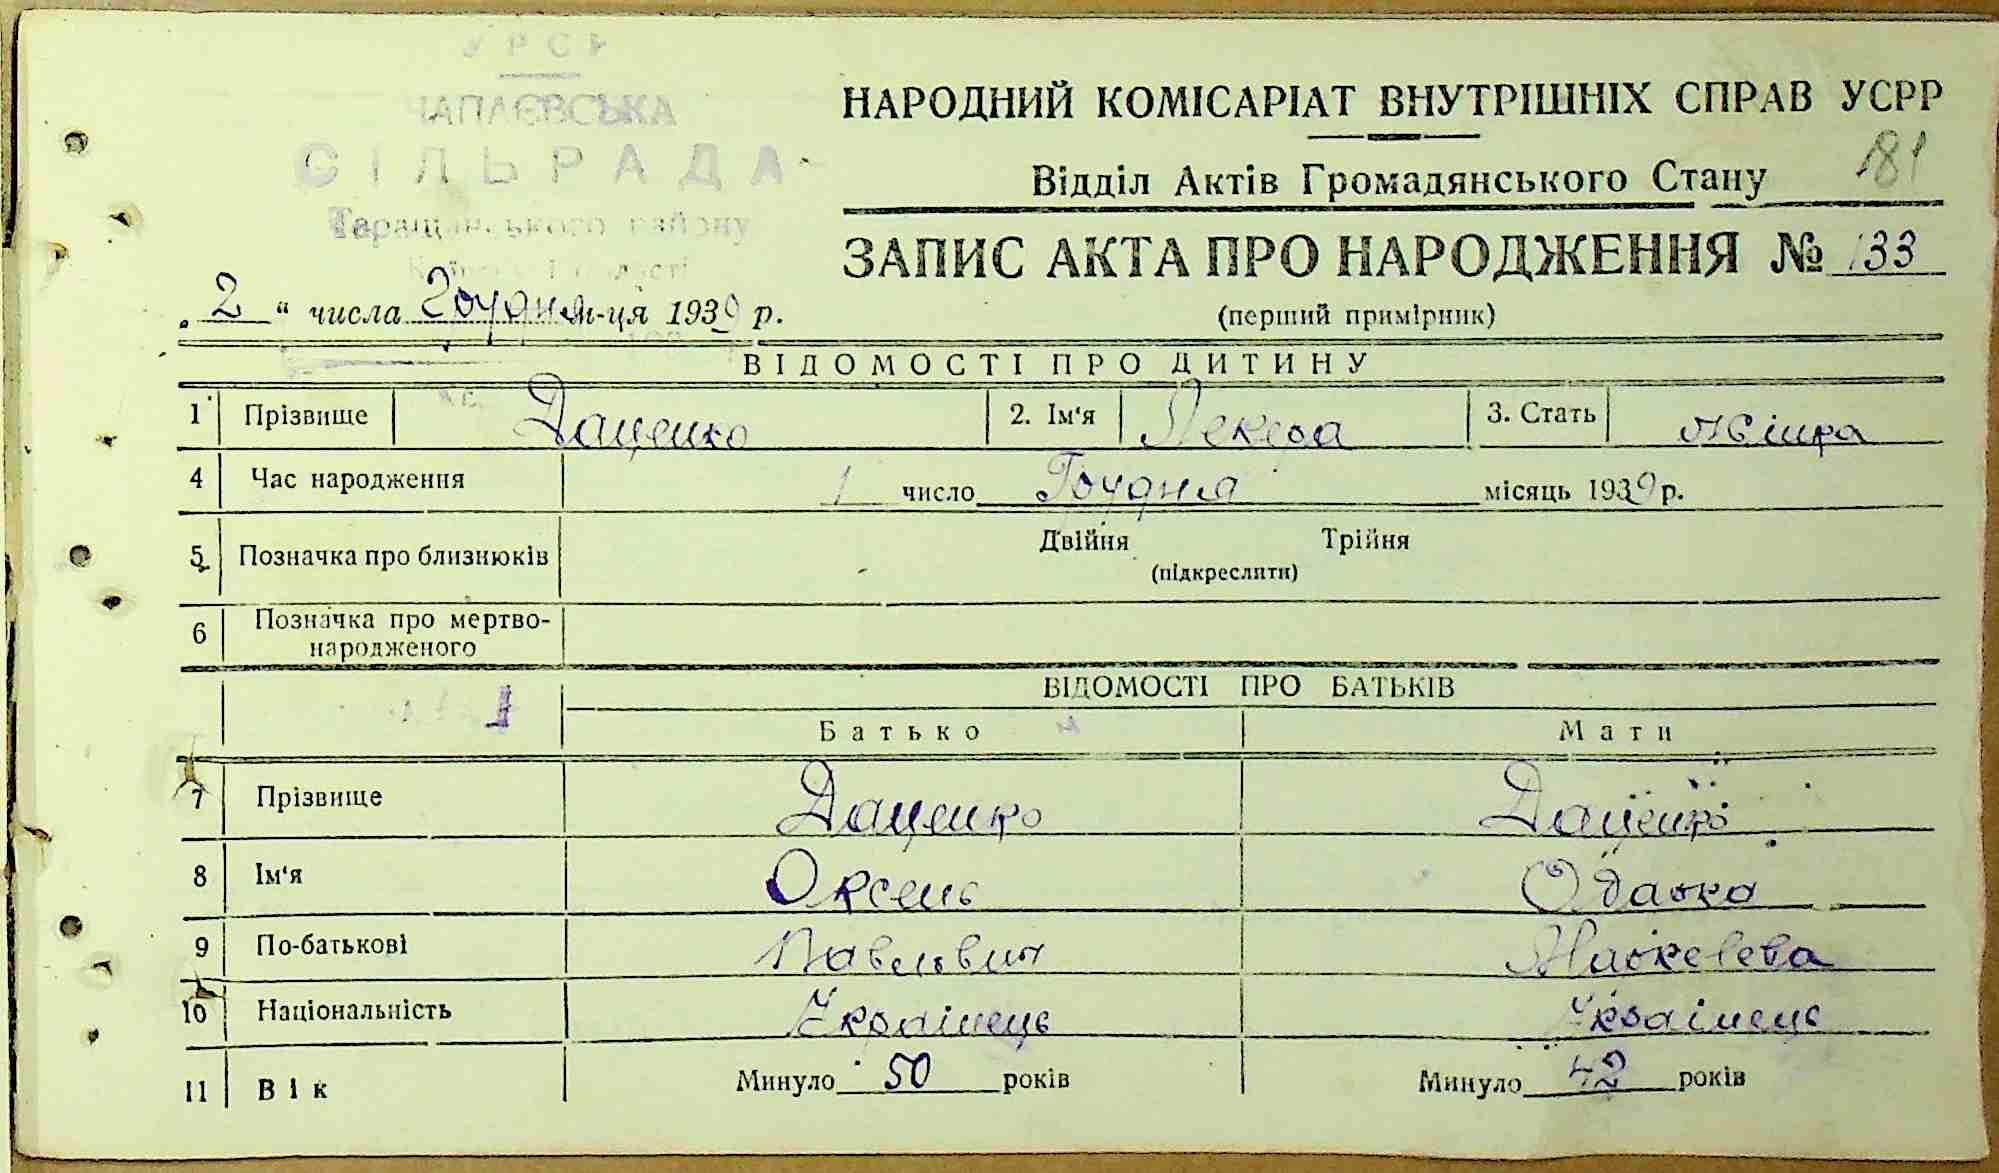 УРСР
ЧАПАЄВСЬКА
СІЛЬРАДА
Таращанського району
НАРОДНИЙ КОМІСАРІАТ ВНУТРІШНІХ СПРАВ УСРР
181
Відділ Актів Громадянського Стану
ЗАПИС АКТА ПРО НАРОДЖЕННЯ № 133
(перший примірник)
„ 2 “ числа Грудня м-ця 1939 р.
ВІДОМОСТІ ПРО ДИТИНУ
1 Прізвище Даценко 2. Ім'я 3. Стать жінка
4 Час народження 1 число Грудня місяць 1939 р.
5 Позначка про близнюків Двійня Трійня
(підкреслити)
6 Позначка про мертво-
народженого
ВІДОМОСТІ ПРО БАТЬКІВ
Батько Мати
7 Прізвище Даценко Даценко
8 Ім'я Оксень Одарка
9 По-батькові Павлович
10 Національність Українець Українець
11 Вік Минуло 50 років Минуло 42 років